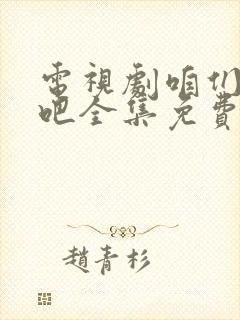 電視劇咱们
吧全集免費
趙青杉